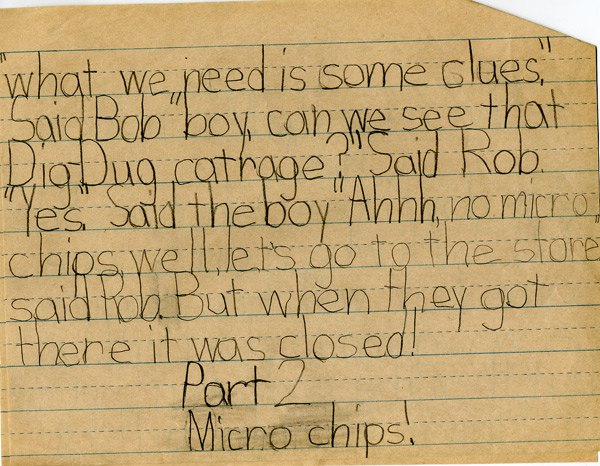 "what we need is some clues,"
Said Bob "boy, can we see that
Dig-Dug catrage?" Said Rob
"Yes." Said the boy "Ahhh, no micro
chips, well, let's go to the store"
said Rob. But when they got
there it was closed!
Part 2
Micro chips!